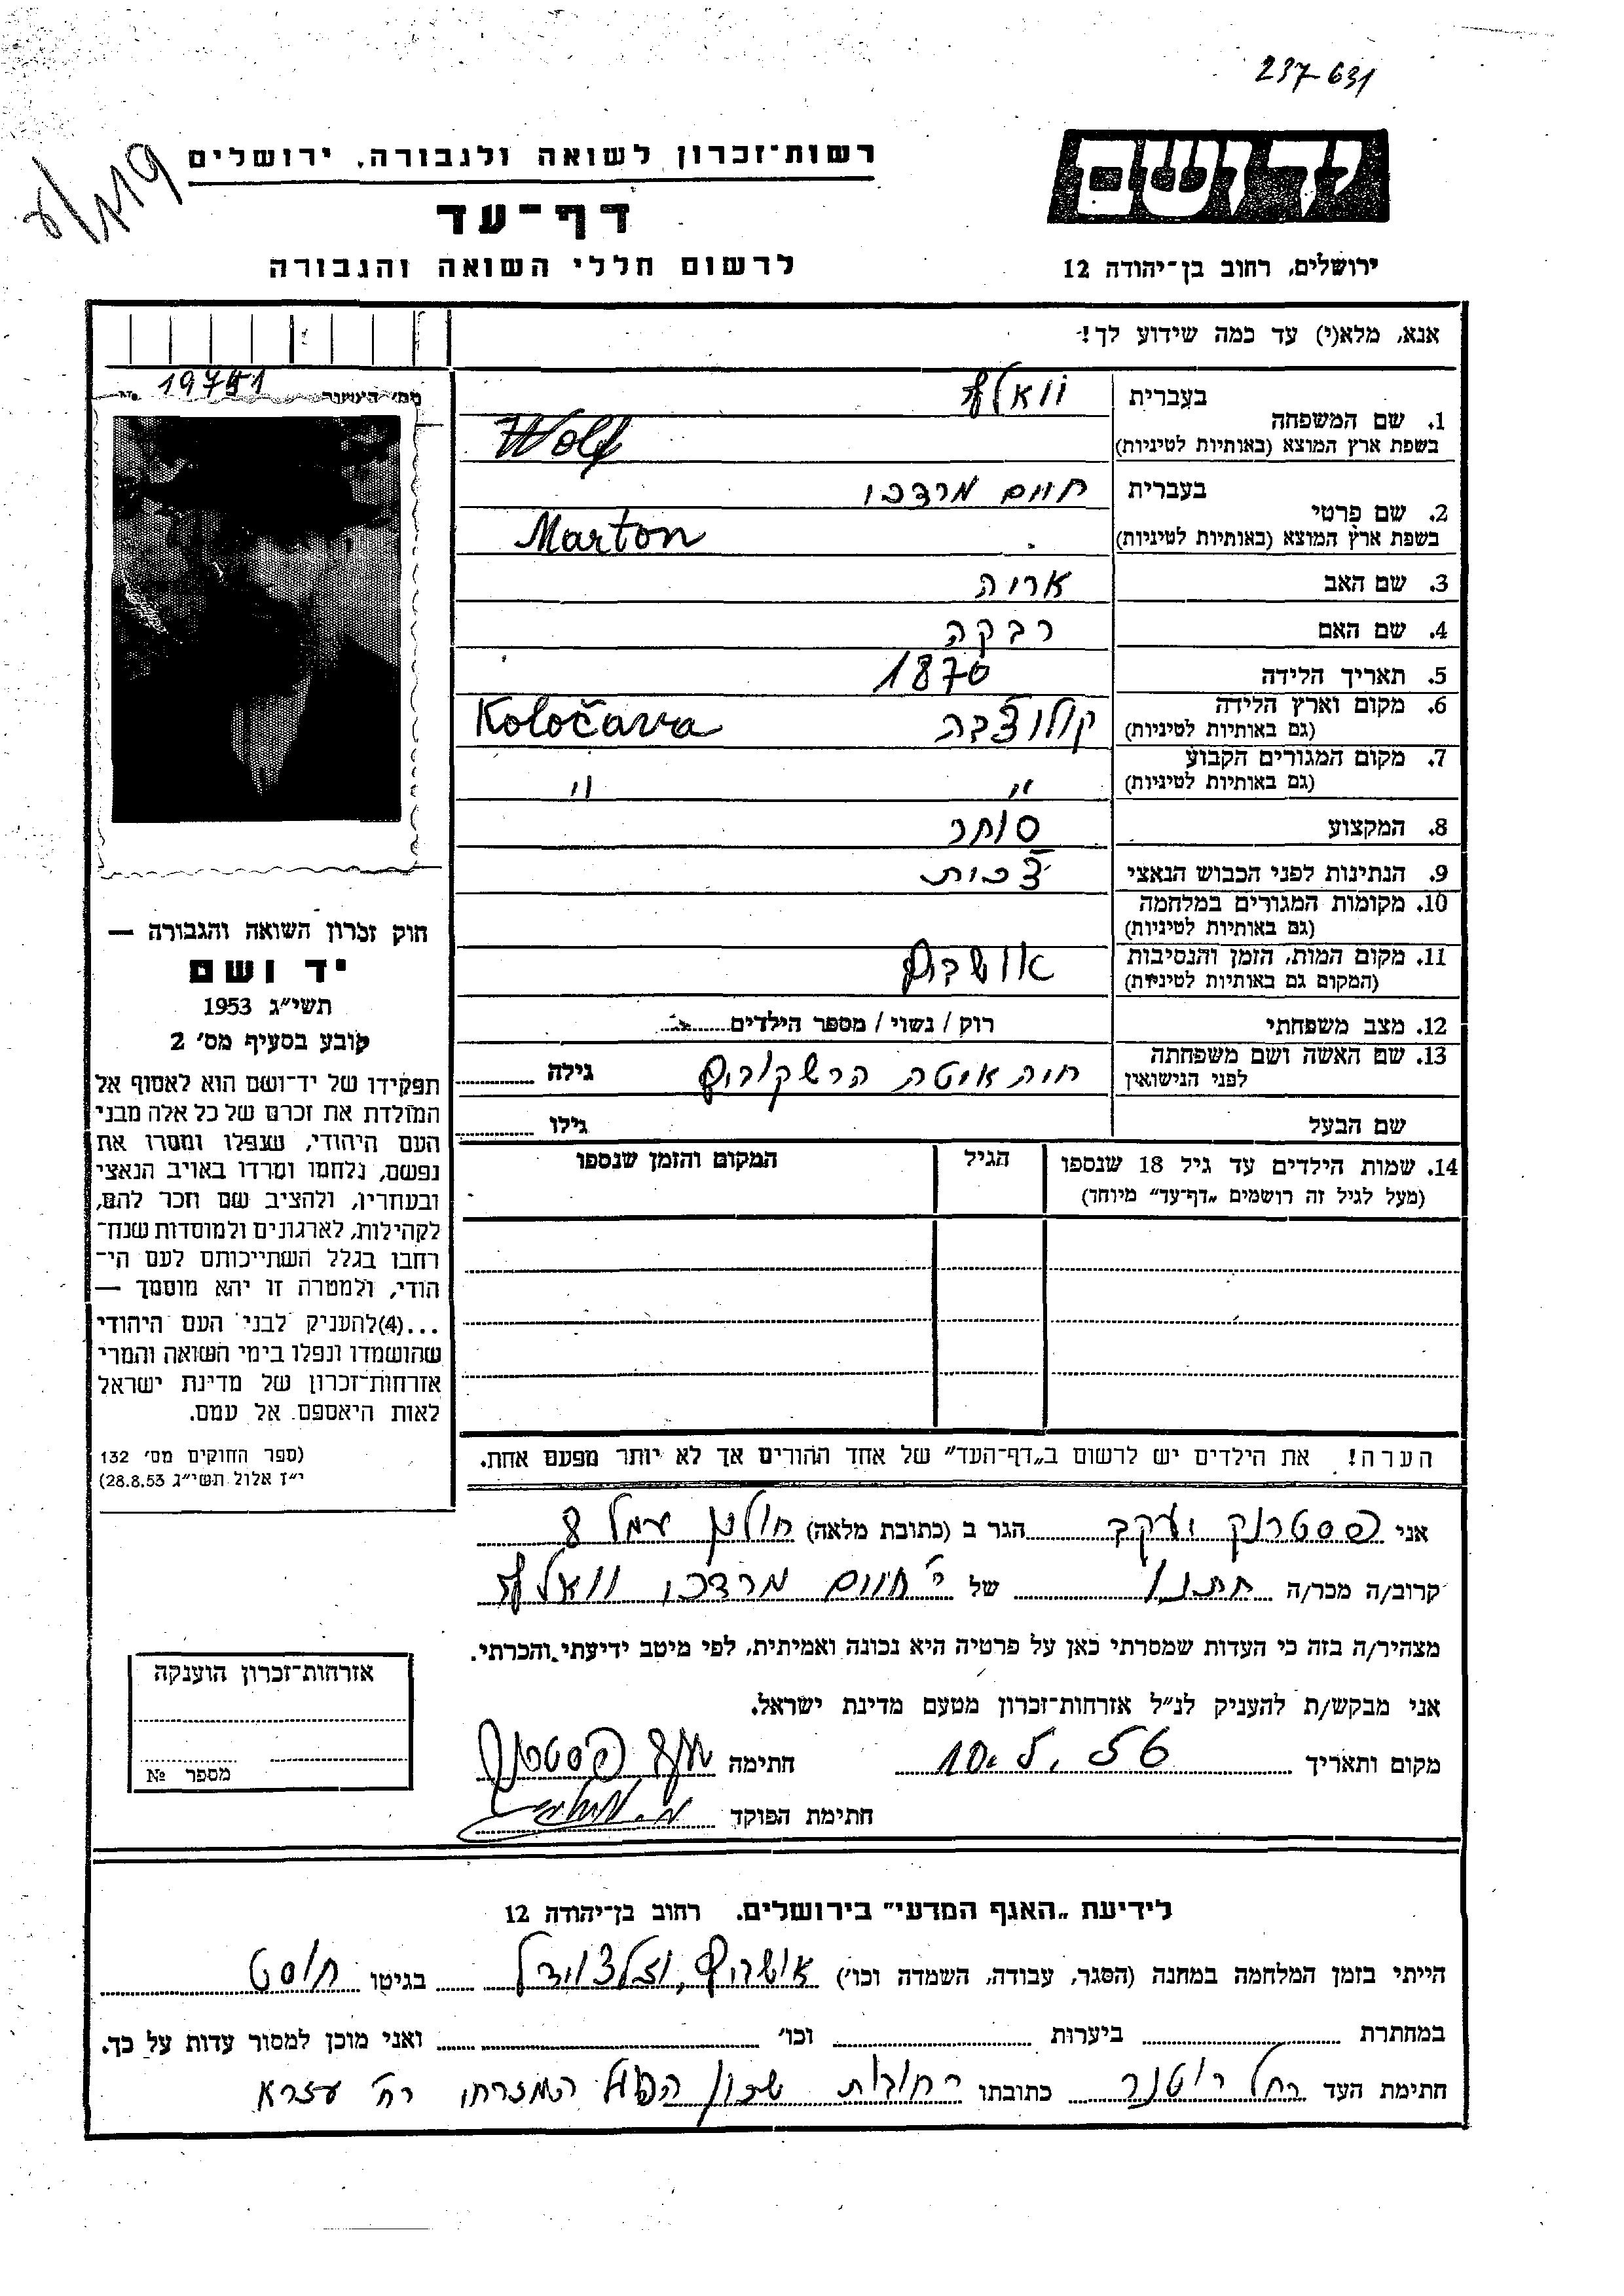 237-631
יד ושם
רשות־זכרון לשואה ולגבורה, ירושלים
דף־עד
לרשום חללי השואה והגבורה
ירושלים, רחוב בן־יהודה 12
אנא, מלא(י) עד כמה שידוע לך!
1. שם המשפחה
בעברית וואלף
בשפת ארץ המוצא (באותיות לטיניות) Wolf
2. שם פרטי
בעברית חיים מרדכי
בשפת ארץ המוצא (באותיות לטיניות) Marton
3. שם האב אריה
4. שם האם רבקה
5. תאריך הלידה 1870
6. מקום וארץ הלידה
(גם באותיות לטיניות) קולוצ'בה Koločava
7. מקום המגורים הקבוע
(גם באותיות לטיניות) " "
8. המקצוע סוחר
9. הנתינות לפני הכבוש הנאצי צ'כית
10. מקומות המגורים במלחמה
(גם באותיות לטיניות)
11. מקום המות, הזמן והנסיבות
(המקום גם באותיות לטיניות)
12. מצב משפחתי רוק / נשוי / מספר הילדים
13. שם האשה ושם משפחתה
לפני הנישואין חיה איטה הרשקוביץ גילה
שם הבעל גילו
14. שמות הילדים עד גיל 18 שנספו הגיל המקום והזמן שנספו
(מעל לגיל זה רושמים „דף־עד" מיוחד)
הערה! את הילדים יש לרשום ב„דף־העד" של אחד ההורים אך לא יותר מפעם אחת.
חוק זכרון השואה והגבורה —
יד ושם
תשי"ג 1953
קובע בסעיף מס' 2
תפקידו של יד־ושם הוא לאסוף אל
המולדת את זכרם של כל אלה מבני
העם היהודי, שנפלו ומסרו את
נפשם, נלחמו ומרדו באויב הנאצי
ובעוזריו, ולהציב שם וזכר להם,
לקהילות, לארגונים ולמוסדות שנח־
רבו בגלל השתייכותם לעם הי־
הודי, ולמטרה זו יהא מוסמך —
...(4) להעניק לבני העם היהודי
שהושמדו ונפלו בימי השואה והמרי
אזרחות־זכרון של מדינת ישראל
לאות היאספם אל עמם.
(ספר החוקים מס' 132
י"ז אלול תשי"ג 28.8.53)
אני פסטרנק יעקב הגר ב (כתובת מלאה) חולון עמל 8
קרוב/ה מכר/ה חתנו של ר' חיים מרדכי וואלף
מצהיר/ה בזה כי העדות שמסרתי כאן על פרטיה היא נכונה ואמיתית, לפי מיטב ידיעתי והכרתי.
אני מבקש/ת להעניק לנ"ל אזרחות־זכרון מטעם מדינת ישראל.
מקום ותאריך 10.5.56 חתימה
חתימת הפוקד
אזרחות־זכרון הוענקה
מספר №
לידיעת „האגף המדעי" בירושלים. רחוב בן־יהודה 12
הייתי בזמן המלחמה במחנה (הסגר, עבודה, השמדה וכו') בגיטו חוסט
במחתרת ביערות וכו' ואני מוכן למסור עדות על כך.
חתימת העד רחל רוטנר כתובתו רחובות שכון הפועל המזרחי רח' עזרא